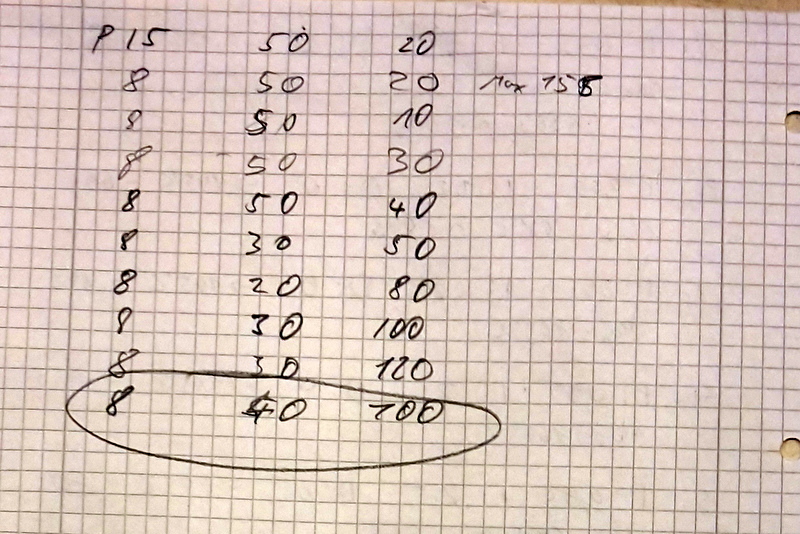 P 15 50 20
8 50 20 Max 155
8 50 10
8 50 30
8 50 40
8 30 50
8 20 80
8 30 100
8 30 120
8 40 100